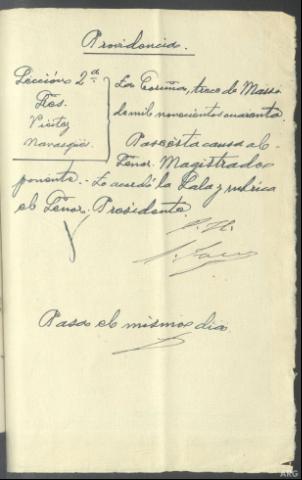 Providencia.
Sección 2ª
Sres.
Visitez
Navasqüés
La Coruña, trece de Marzo
de mil novecientos cuarenta.
Pase esta causa al
Señor Magistrado
ponente.- Lo acordó la Sala y rubrica
el Señor Presidente.
Pasa el mismo dia
ARG